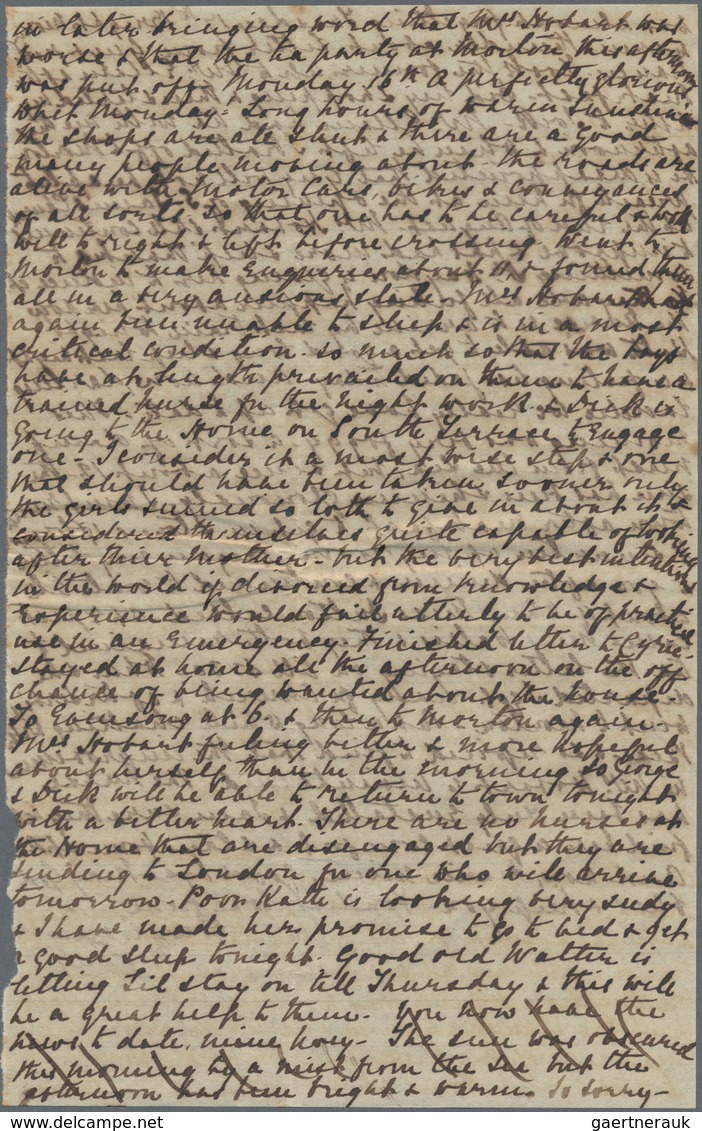 in later bringing word that Mrs Hobart was
worse & that the tea party at Morton this afternoon
was put off. Monday 16th A perfectly glorious
Whit Monday. Long hours of warm sunshine
the shops are all shut & there are a good
many people moving about. the roads are
alive with Motor Cars, bikes & conveyances
of all sorts so that one has to be careful & look
well to right & left before crossing. Went to
Morton to make Enquiries about 11, & found them
all in a very anxious state. Mrs Hobart has
again been unable to sleep & is in a most
critical condition. so much so that the boys
have at length prevailed on them to have a
trained nurse for the night work & Dick is
going to the Home on South Terrace to Engage
one. I consider it a most wise step & one
that should have been taken sooner only
the girls seemed so loth to give in about it &
considered themselves quite capable of looking
after their Mother. but the very best intentions
in the world if divorced from knowledge &
Experience would fail utterly to be of practical
use in an Emergency. Finished letter to
stayed at home all the afternoon on the off
chance of being wanted about the house.
To Evensong at 6. & then to Morton again.
Mrs Hobart feeling better & more hopeful
about herself than in the morning so George
& Dick will be able to return to town tonight
with a better heart. There are no nurses at
the Home that are disengaged but they are
sending to London for one who will arrive
tomorrow. Poor Kate is looking very seedy
& I have made her promise to go to bed & get
a good sleep tonight. Good old Walter is
letting Lil stay on till Thursday & this will
be a great help to them. You now have the
news to date, mine . The sun was obscured
this morning by a mist from the sea but the
afternoon has been bright & warm. So sorry
gaertnerauk